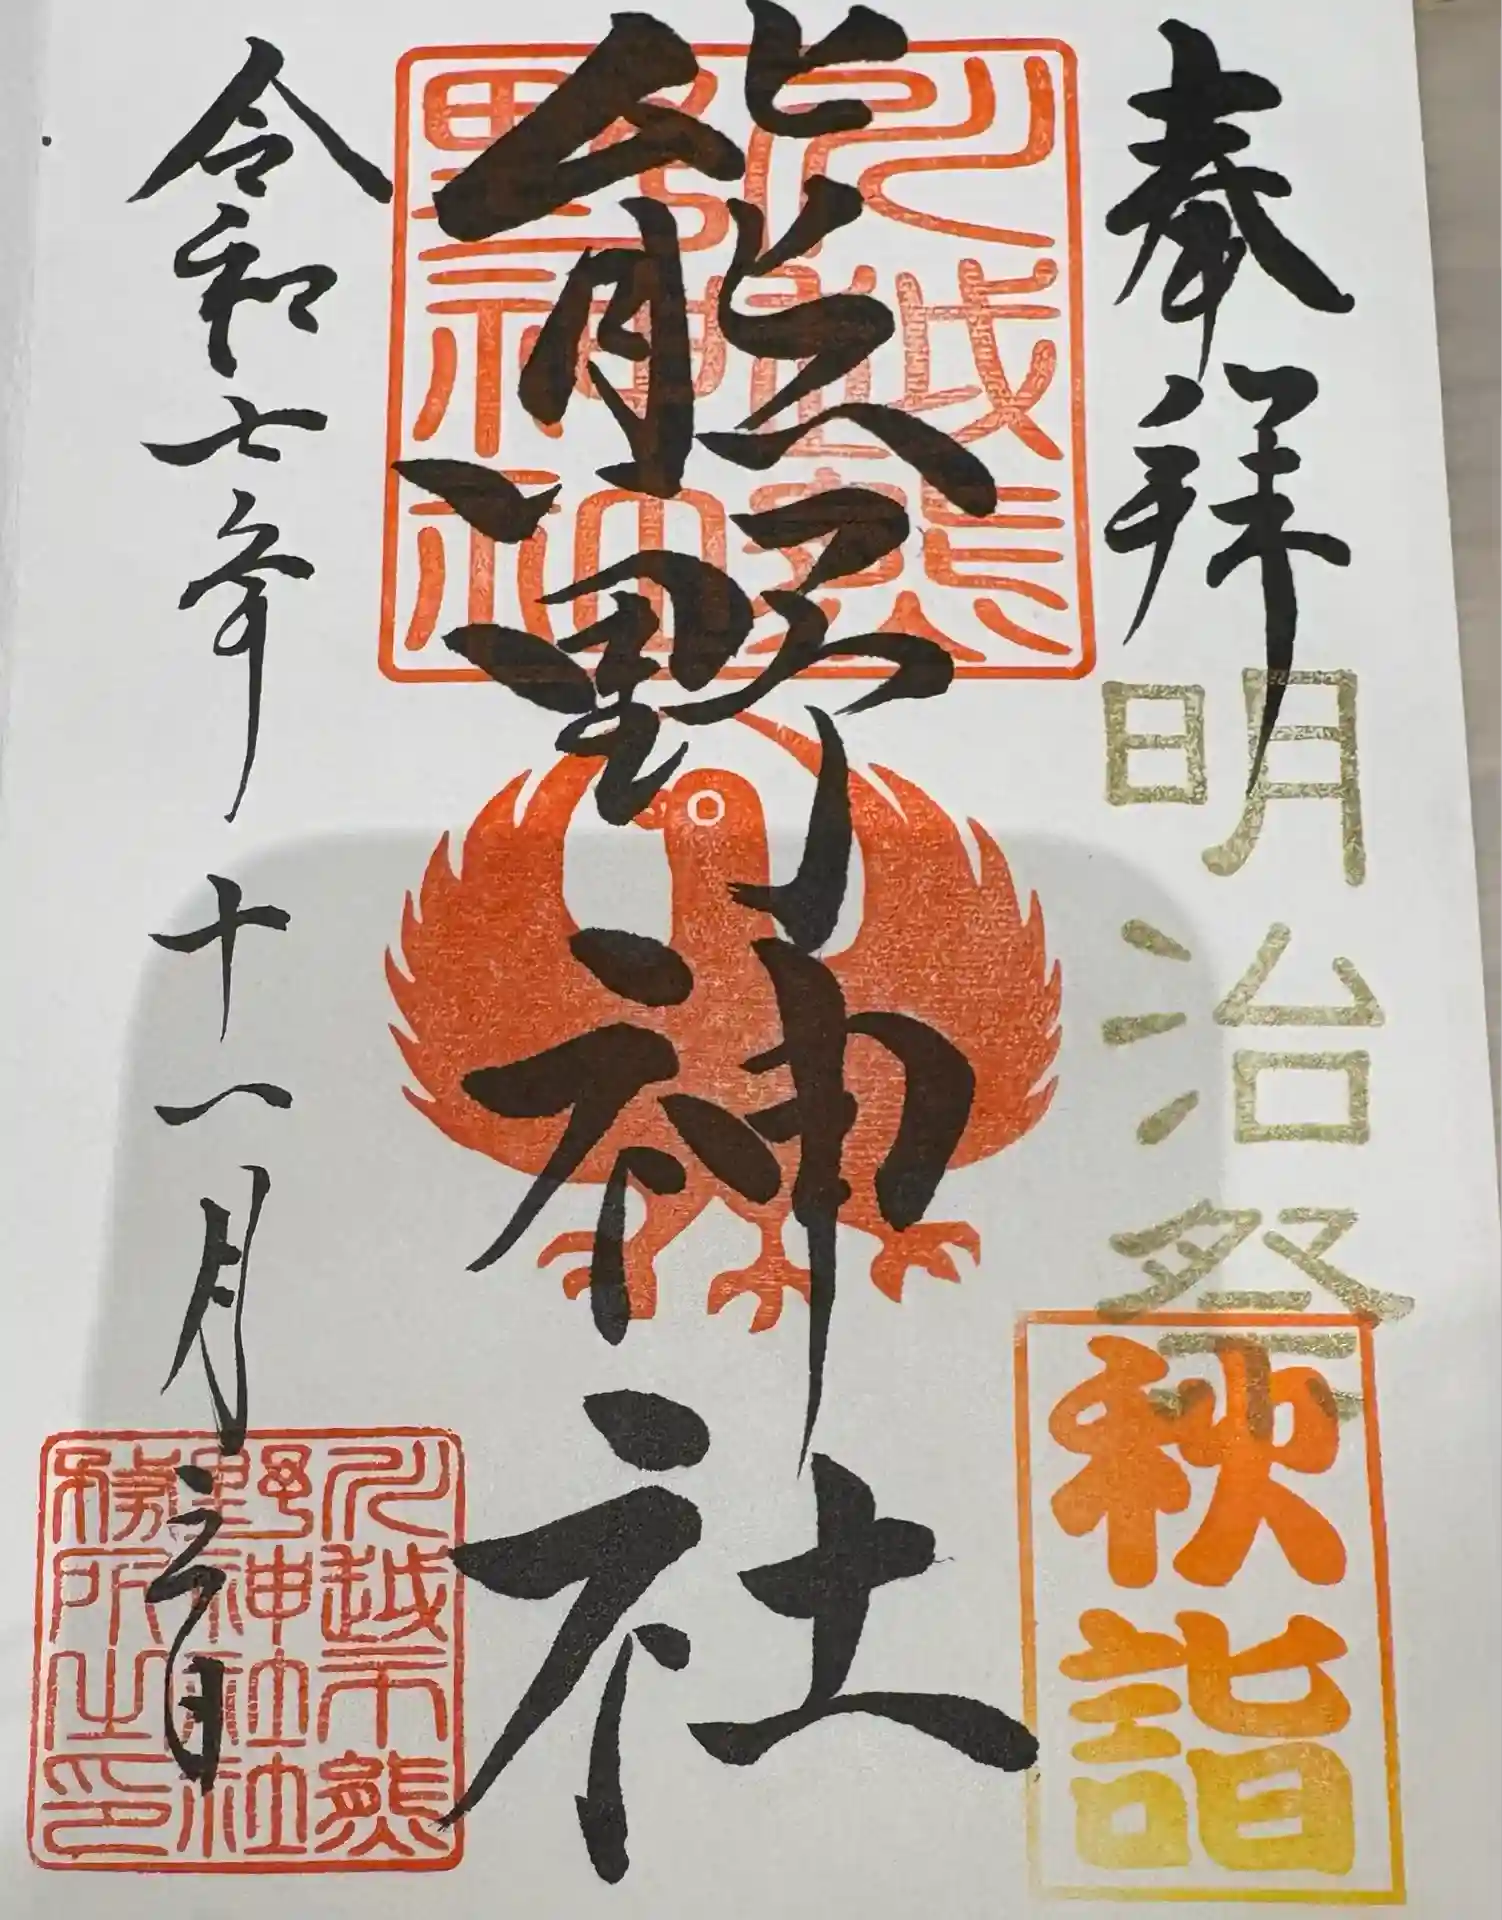 奉拝
明治祭
秋詣
熊野神社
川越熊
野神社
令和七年十一月三日
川越市熊
野神社社
務所之印